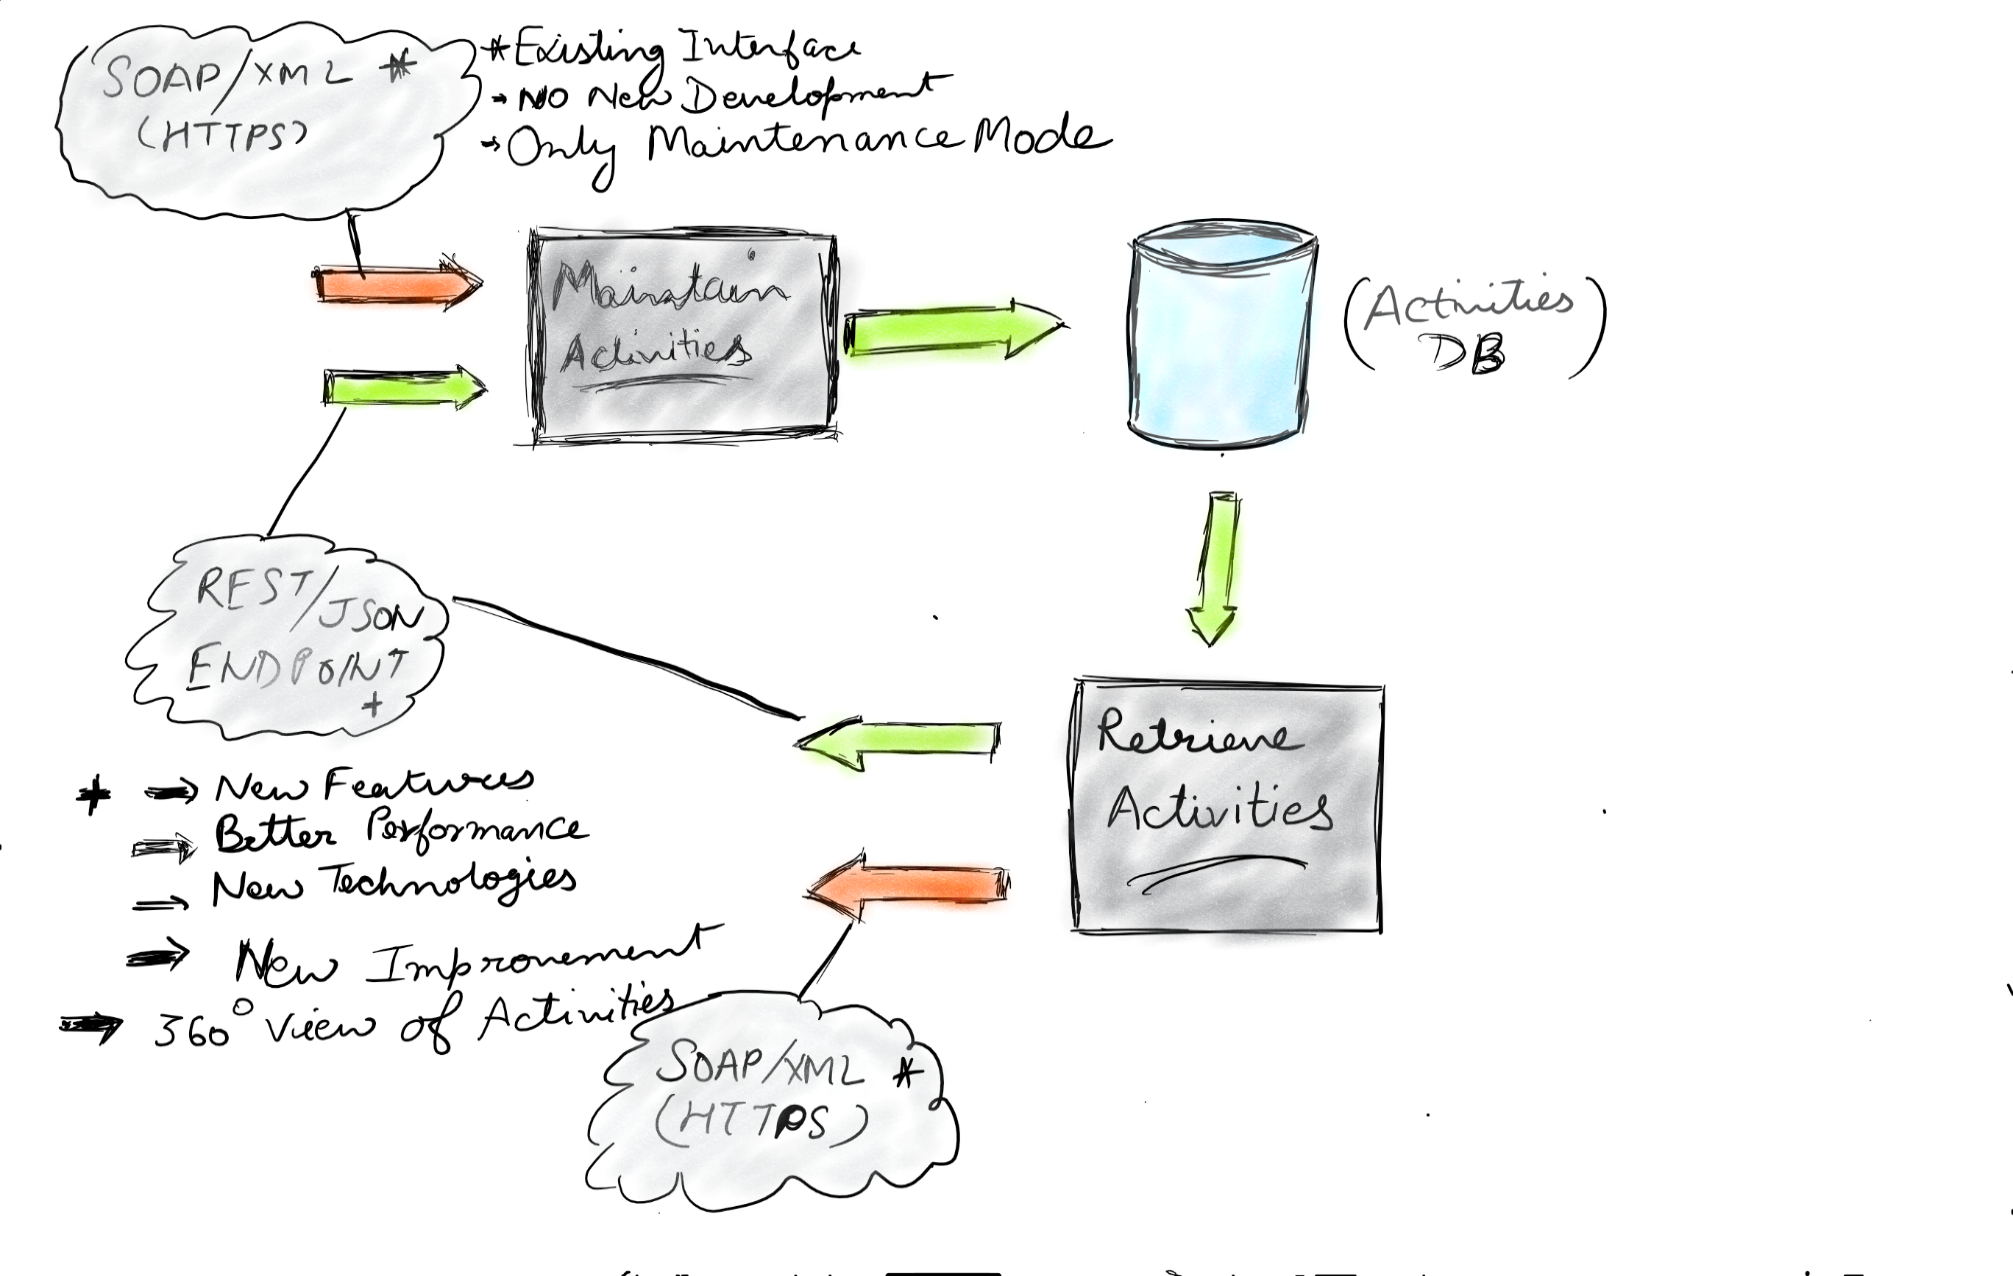 SOAP/XML *
(HTTPS)
* Existing Interface
→ NO New Development
→ Only Maintenance Mode
Maintain
Activities
(Activities
DB)
REST/JSON
ENDPOINT
+
Retrieve
Activities
+ → New Features
→ Better Performance
→ New Technologies
→ New Improvement
→ 360° View of Activities
SOAP/XML *
(HTTPS)